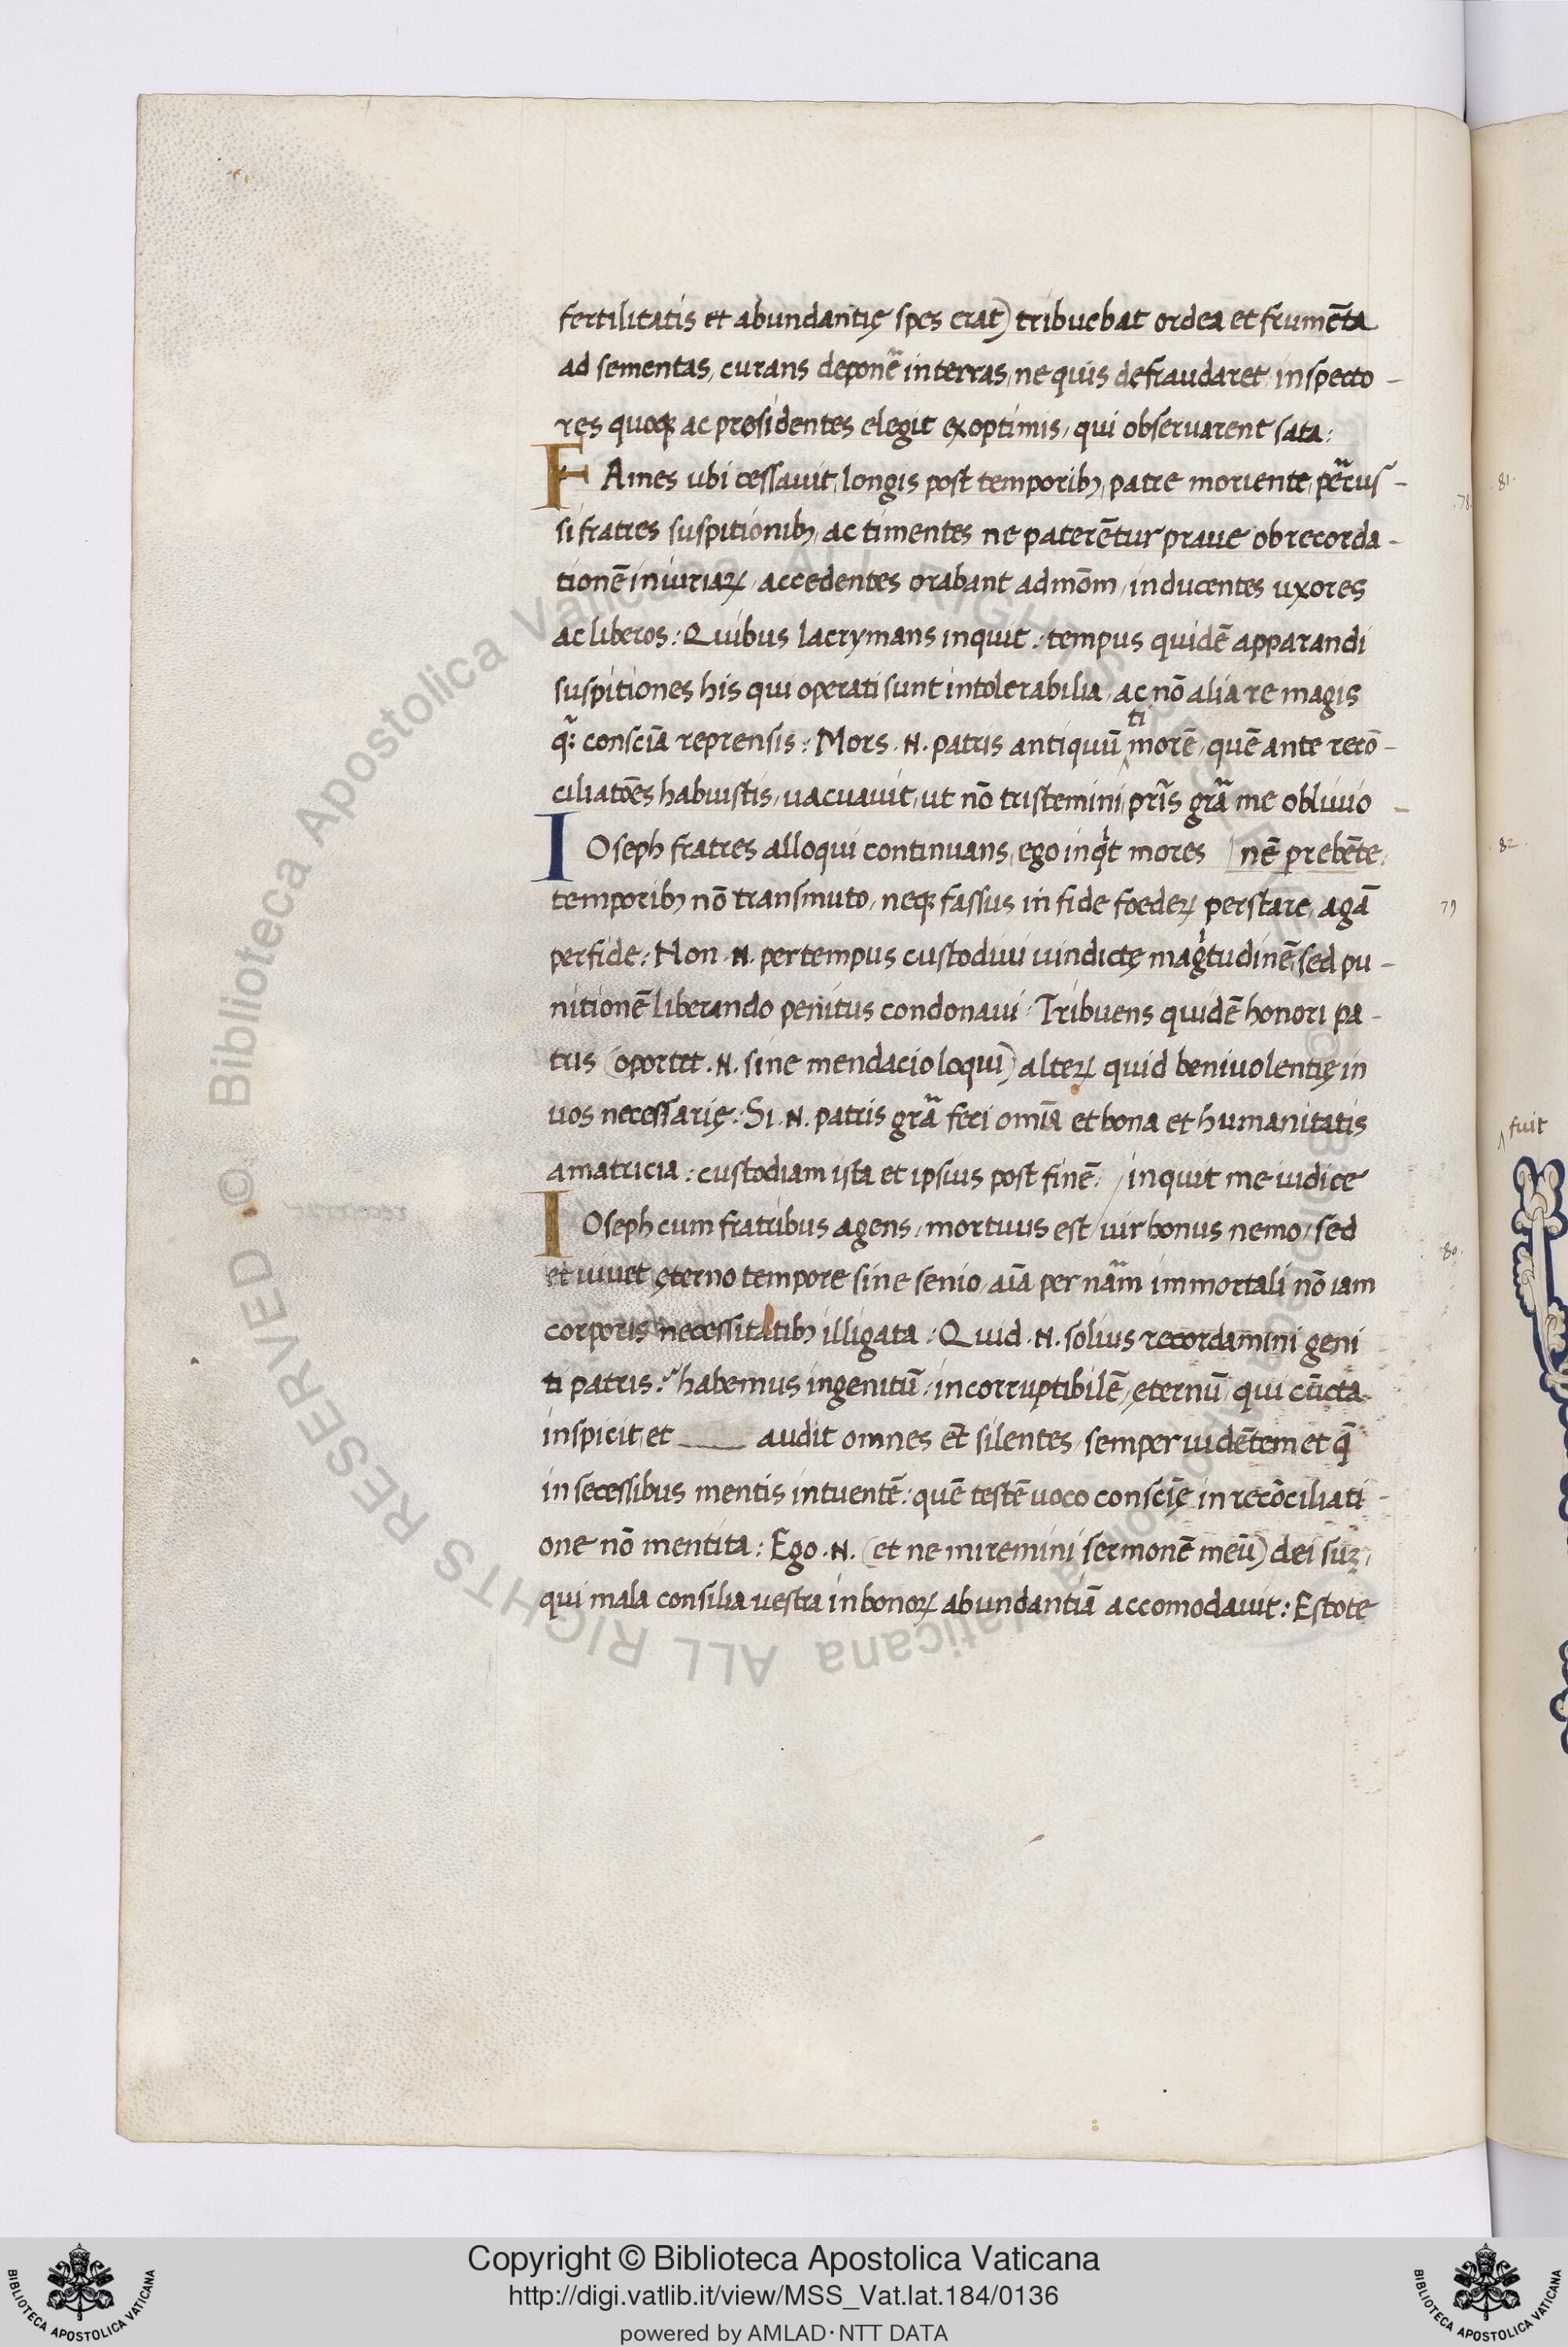 fertilitatis et abundantię spes erat) tribuebat ordea et frumēta
ad sementas, curans deponē in terras, ne quis defraudaret, inspecto-
res quoqꝫ ac presidentes elegit ex optimis, qui observarent sata:
FAmes ubi cessavit, longis post temporibꝫ, patre moriente, ꝑcus-
si fratres suspitionibꝫ, ac timentes ne paterētur prave ob recorda-
tionē iniuriaꝝ, accedentes orabant admōm, inducentes uxores
ac liberos: Quibus lacrymans inquit: tempus quidē apparandi
suspitiones his qui operati sunt intolerabilia, ac nō alia re magis
q̃: consciā reprensis: Mors .N. patris antiquū timorē, quē ante recō-
ciliatōēs habuistis, vacuavit, ut nō tristemini pr̄is grā me oblivio-
IOseph fratres alloqui continuans, ego inqͥt mores / nē prebēte.
temporibꝫ nō transmuto, neqꝫ fassus in fide foedeꝝ perstare, agā
perfide: Non .N. per tempus custodivi vindictę magͥtudinē, sed pu-
nitionē liberando penitus condonavi. Tribuens quidē honori pa-
tris (oportet .N. sine mendacio loqui) alteꝝ quid benivolentię in
vos necessarię: Si .N. patris grā feci omīa et bona et humanitatis
amatricia: custodiam ista et ipsius post finē. / inquit me iudice
IOseph cum fratribus agens, mortuus est / vir bonus nemo, sed
et vivet ęterno tempore sine senio, aīa per nām immortali nō iam
corporis necessitatibꝫ illigata: Quid .N. solius recordamini geni
ti patris? habemus ingenitū, incorruptibilē, ęternū, qui cūcta
inspicit, et ___ audit omnes et silentes, semper vidētem et q̄
in secessibus mentis intuentē: quē testē voco conscię in recōciliati-
one nō mentita: Ego .N. (et ne miremini sermonē meū) dei suꝫ,
qui mala consilia vestra in bonoꝝ abundantiā accomodavit: Estote
78
79
80
81
82
fuit
© Biblioteca Apostolica Vaticana ALL RIGHTS RESERVED
Copyright © Biblioteca Apostolica Vaticana
http://digi.vatlib.it/view/MSS_Vat.lat.184/0136
powered by AMLAD·NTT DATA
BIBLIOTECA APOSTOLICA VATICANA
BIBLIOTECA APOSTOLICA VATICANA